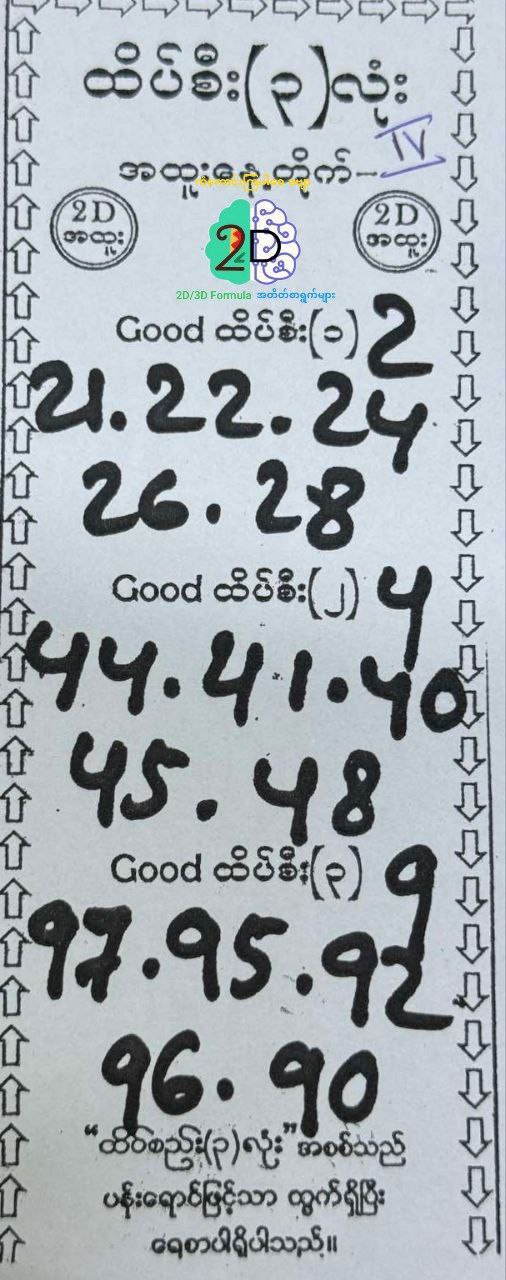 ထိပ်စီး(၃)လုံး
အထူးနေ့တိုက် - IV
2D
အထူး
2D
အထူး
2D
2D/3D Formula အတိတ်စာရွက်များ
Good ထိပ်စီး(၁) 2
21. 22. 24
26. 28
Good ထိပ်စီး(၂) 4
44. 41. 40
45. 48
Good ထိပ်စီး(၃) 9
97. 95. 92
96. 90
"ထိပ်စည်း(၃)လုံး" အစစ်သည်
ပန်းရောင်ဖြင့်သာ ထွက်ရှိပြီး
ရေစာပါရှိပါသည်။